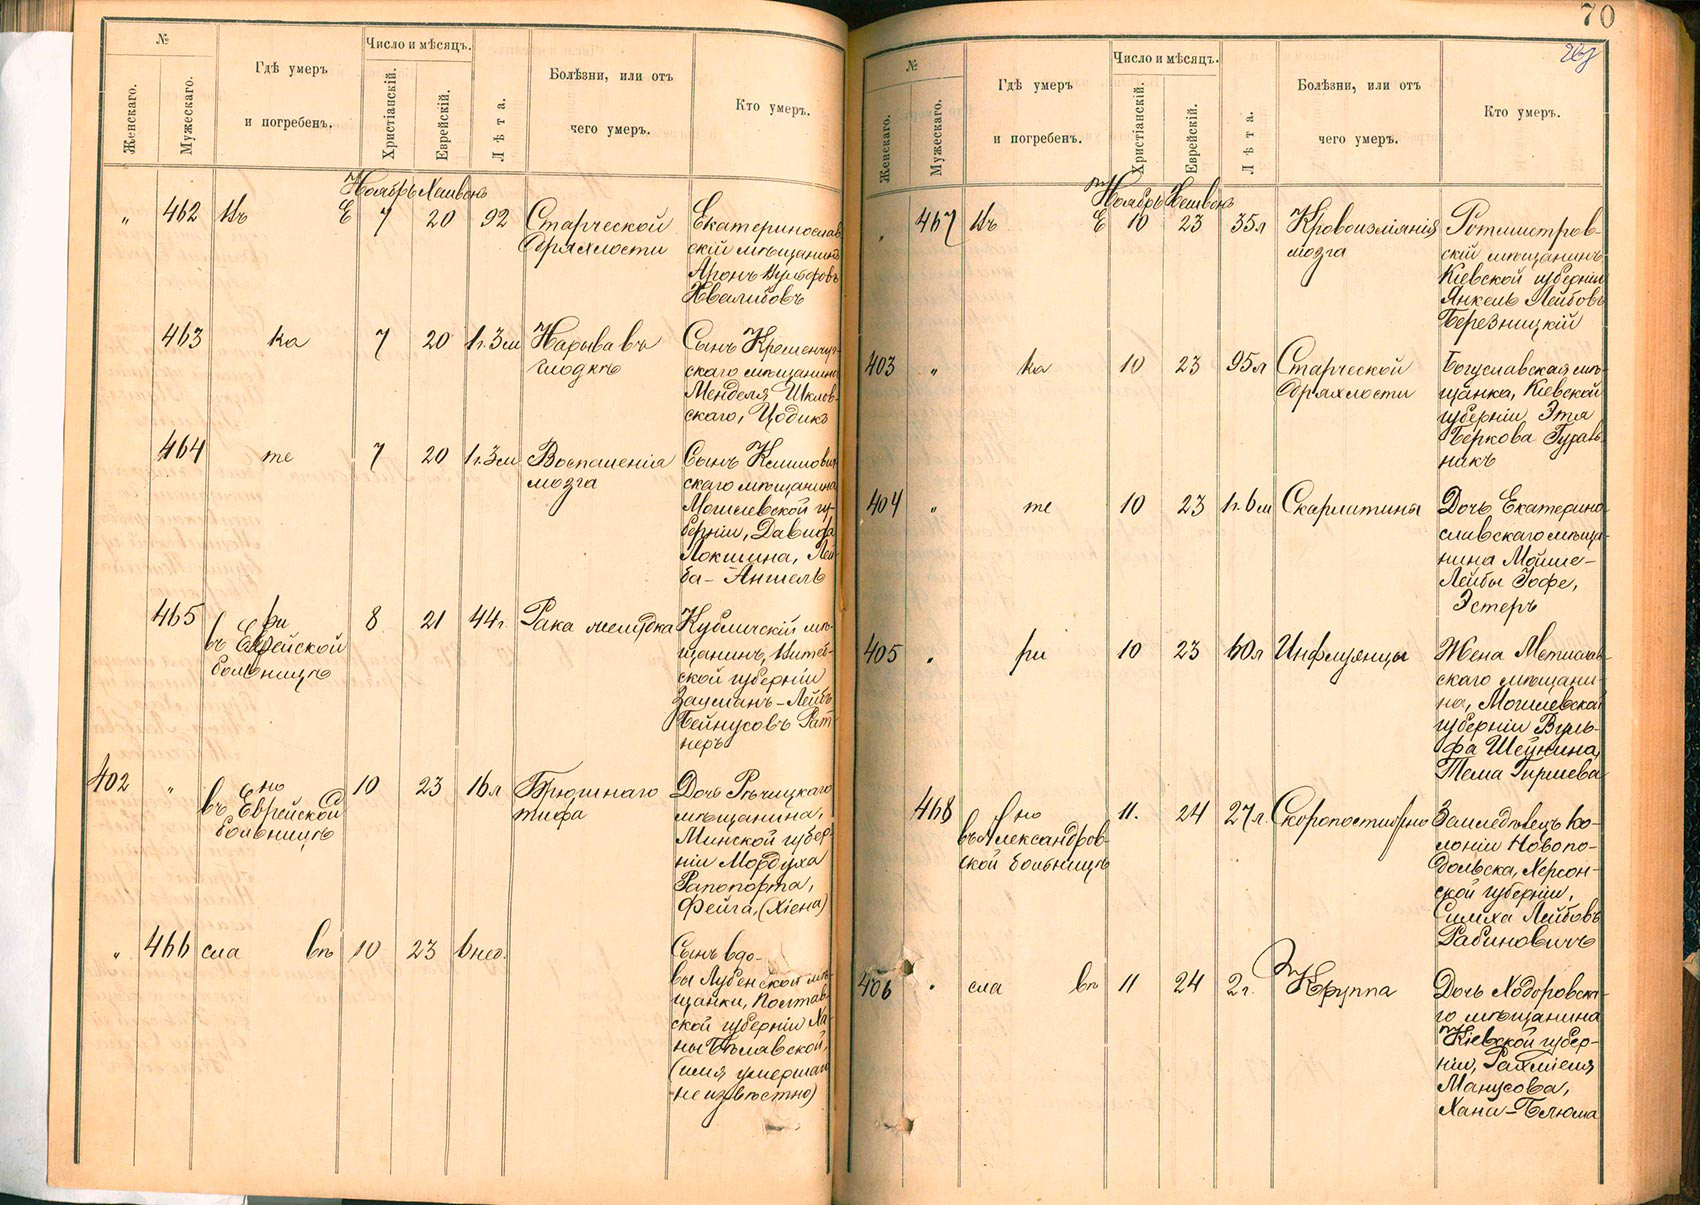 №
Женскаго.
Мужескаго.
Гдѣ умеръ
и погребенъ.
Число и мѣсяцъ.
Христіанскій.
Еврейскій.
Лѣта.
Болѣзни, или отъ
чего умеръ.
Кто умеръ.
Ноябрь Хешвонъ
" 462 Въ Е 7 20 92 Старческой
дряхлости
Екатеринослав
скій мѣщанинъ
Аронъ Вульфовъ
463 ка 7 20 1г.3м Нарыва въ
глоткѣ
Сынъ Кременчуг-
скаго мѣщанина
Менделя Шклов-
скаго, Цодикъ
464 те 7 20 1г.3м Воспаленія
мозга
Сынъ Климович
скаго мѣщанина
Могилевской гу-
берніи, Давида
Локшина, Лей-
ба-Аншель
465 ри 8 21 44г. Рака желудка
въ Еврейской
больницѣ
Кубличскій мѣ-
щанинъ, Витеб-
ской губерніи
Залманъ-Лейбъ
Бейнусовъ Рат-
неръ
402 " но 10 23 16л Брюшнаго
тифа
въ Еврейской
больницѣ
Дочь Рѣчицкаго
мѣщанина,
Минской губер-
ніи Мордуха
Рапопорта,
Фейга, (Хіена)
" 466 сла вѣ 10 23 6 нед.
Сынъ вдо-
вы Лубенской мѣ-
щанки, Полтав-
ской губерніи Ха-
ны Бѣлявской,
(имя умершаго
неизвѣстно)
70
№
Женскаго.
Мужескаго.
Гдѣ умеръ
и погребенъ.
Число и мѣсяцъ.
Христіанскій.
Еврейскій.
Лѣта.
Болѣзни, или отъ
чего умеръ.
Кто умеръ.
Ноябрь Хешвонъ
" 467 Въ Е 10 23 35л Кровоизліянія
мозга
Ротмистров-
скій мѣщанинъ
Кіевской губерніи
Янкель Лейбовъ
Березницкій
403 " ка 10 23 95л Старческой
дряхлости
Богуславская мѣ-
щанка, Кіевской
губерніи Этя
Беркова Гураль
никъ
404 " те 10 23 1г.6м Скарлатины
Дочь Екатерино
славскаго мѣща-
нина Мойше-
Лейбы Іофе,
Эстеръ
405 " ри 10 23 60л Инфлуенцы
Жена Мстислав-
скаго мѣщани-
на, Могилевской
губерніи Вуль-
фа Шейнина,
Тема Гиршева
468 но 11. 24 27л. Скоропостижно
въ Александров-
ской больницѣ
Земледѣлецъ ко-
лоніи Новопо-
дольска, Херсон-
ской губерніи,
Симха Лейбовъ
Рабиновичъ
406 " сла вѣ 11 24 2г. Круппа
Дочь Ходоровска-
го мѣщанина
Кіевской губер-
ніи, Рахміеля
Манусова,
Хана-Блюма